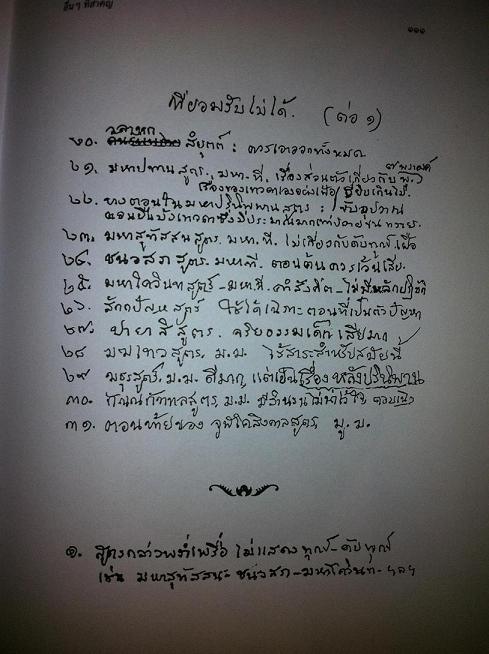 อื่นๆ ที่สำคัญ
๑๑๑
ที่ยอมรับไม่ได้. (ต่อ ๑)
วลาหก
๒๐. สํยุตต์ : ควรเอาออกทั้งหมด
๒๑. มหาปทานสูตร, มหา. ที. เรื่องส่วนตัวเกี่ยวกับ พุ.
๗ พระองค์
เรื่องของเทวดาเอง
๒๒. บางตอนในมหาปรินิพพานสูตร :
๒๓. มหาสุทัสสนสูตร. มหา. ที. ไม่เกี่ยวกับดับทุกข์ เฟ้อ
๒๔. ชนวสภาสูตร. มหา.ที. ตอนต้นควรเว้นเสีย.
๒๕. มหาโควินทสูตร์ - มหา.ที.
๒๖. สักกปัญหสูตร์ ใช้ได้เฉพาะตอนที่เป็นตัวปัญหา
๒๗. ปายาสิสูตร. จริยธรรมเด็กเสียมาก
๒๘ มฆเทวสูตร, ม.ม. ไร้สาระสำหรับสมัยนี้
๒๙ มธุรสูตร์, ม.ม. ดีมาก, แต่เป็นเรื่องหลังปรินิพพาน
๓๐. กัณณกัตถลสูตร, ม.ม. มีสำนวนไม่น่าไว้ใจ
๓๑. ตอนท้ายของ จูฬโคสิงคาลสูตร, มู.ม.
๑. สูตรกล่าวพร่ำเพรื่อ ไม่แสดงทุกข์-ดับทุกข์
เช่น มหาสุทัสสนะ ชนวสภา-มหาโควินท- ฯลฯ